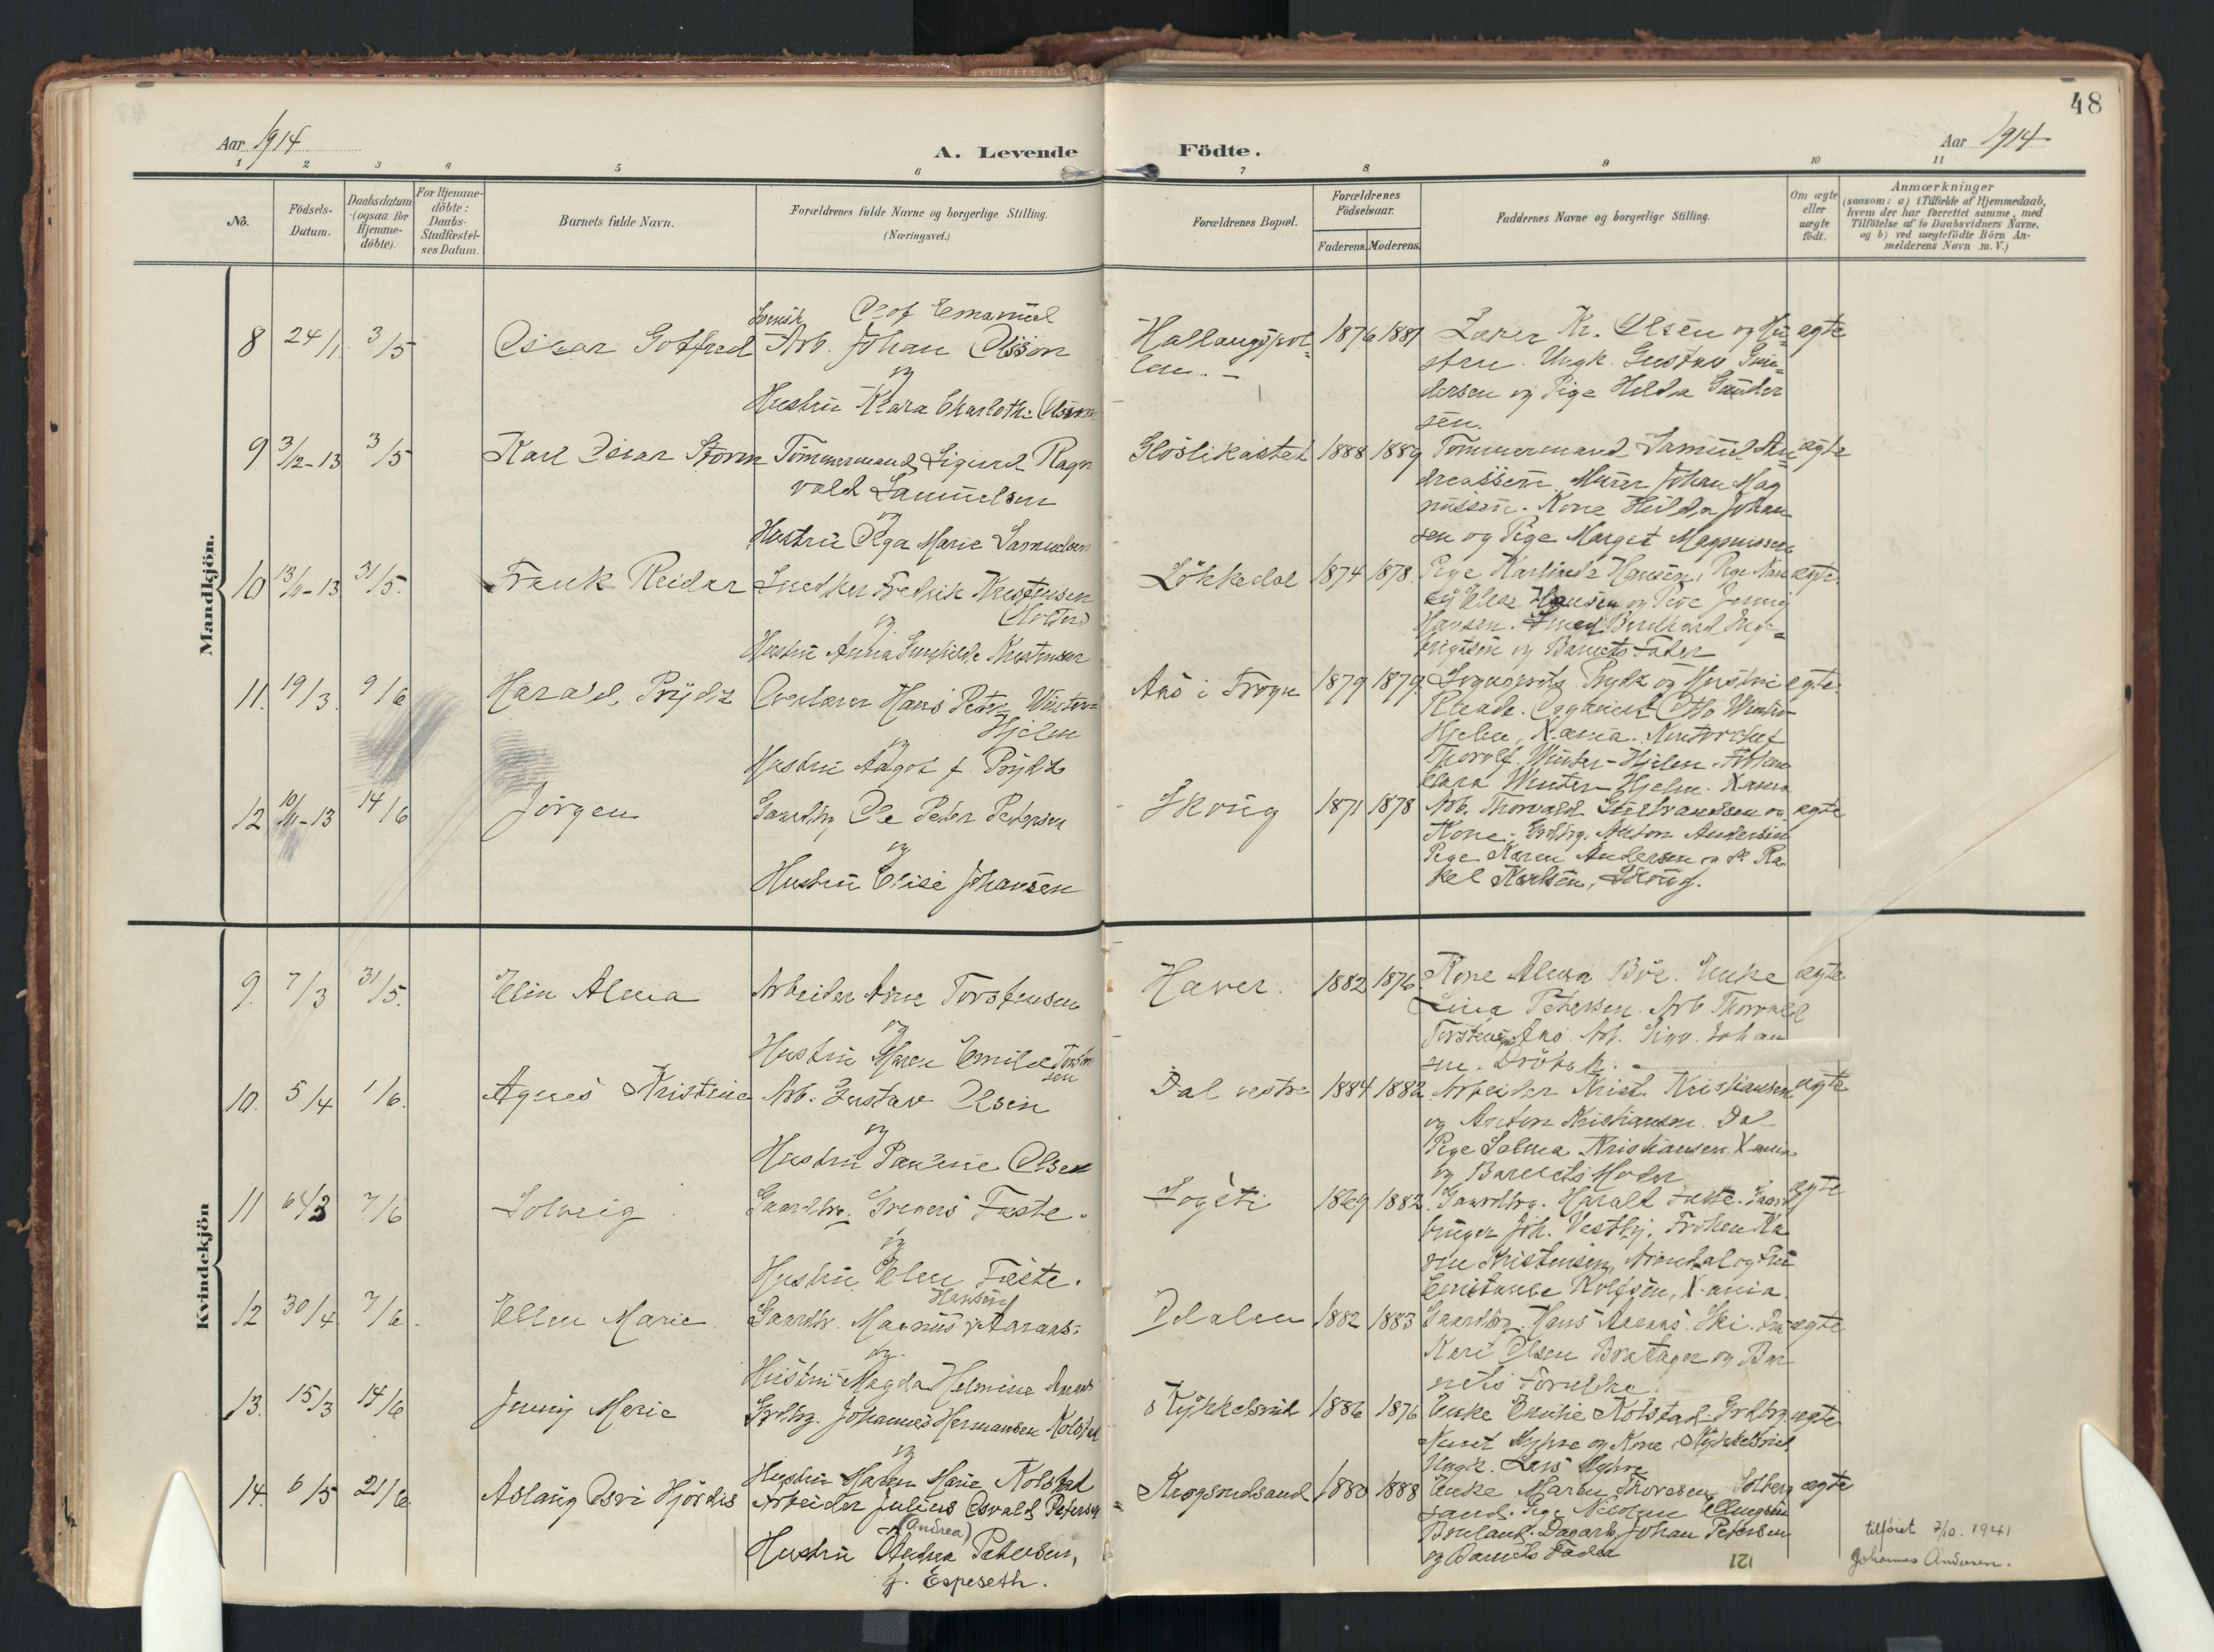 48
Aar 1914
A. Levende Födte.
Aar 1914
1 2 3 4 5 6 7 8 9 10 11
No.
Födsels-Datum.
Daabsdatum (ogsaa for Hjemme-döbte).
For Hjemme-döbte: Daabs-Stadfæstel-ses Datum.
Barnets fulde Navn.
Forældrenes fulde Navne og borgerlige Stilling.
(Næringsvei.)
Forældrenes Bopæl.
Forældrenes Födselsaar.
Faderens. Moderens.
Faddernes Navne og borgerlige Stilling.
Om ægte eller uægte födt.
Anmærkninger
(saasom: a) i Tilfælde af Hjemmedaab,
hvem der har forrettet samme, med
Tilföielse af to Daabsvidners Navne,
og b) ved uægtefödte Börn An-
melderens Navn m. V.)
Mandkjön.
8 24/1 3/5 Oscar Gotfred
Olof Emanuel
Arb. Johan Olsson
og
Hustru Klara Charlothe Olsson
1876 1881
Kr. Olsen og Hu=
stru. Ungk. Gustav Gun=
dersen og Pige Hilda Gunder
sen.
ægte
9 3/12-13 3/5 Karl Oscar Storm
Tömmermand Sigurd Ragn
vald Samuelsen
og
Hustru Olga Marie Samuelsen
Glöslikastet 1888 1889
Tömmermand Samuel An=
dreassen. Murer Johan Mag
nussen. Kone Hilda Johan
sen og Pige Margit Magnussen
ægte
10 31/5. Frank Reidar
Snedker Fredrik Kristensen
og
Hustru Anna Gunhilde Kristensen
Lökkedal 1874 1878.
Pige Karlinde Hansen, Pige
Hansen og Pige Jenny
Hansen.
og Barnets Fader
ægte.
11. 19/3. 9/6 Harald Prydz
Hans Peter Winter=
Hjelm
og
Hustru Aagot f. Prydz
Aas i Frogn 1879 1879.
Prydz og Hustru
Organist Otto Winter-
Hjelm, X.ania. Kontorchef
Thorolf Winter-Hjelm. Fröken
Clara Winter Hjelm. X.ania
ægte.
12 10/11-13 14/6 Jörgen
Gaardbr. Ole Peder Pedersen
og
Hustru Elise Johansen
Skoug 1871 1878
Arb. Thorvald Gulbrandsen og
Kone; Grdbrg. Anton Andersen
Pige Karen Andersen og Ra
kel Karlsen, Skoug.
ægte
Kvindekjön
9. 7/3 31/5. Elin Alma
Arbeider Arne Torstensen
og
Hustru Maren Emilie Torsten
sen
Haver. 1882 1876
Kone Alma Böe. Enke
Lina Petersen. Arb Thorvald
Torstens. Aas. Arb. Johan
sen. Dröbak.
ægte
10. 5/4 1/6. Agnes Kristine
Arb. Gustav Olsen
og
Hustru Pauline Olsen
Dal vestre 1884 1882
Arbeider Krist. Kristiansen
og Anton Kristiansen. Dal
Pige Selma Kristiansen X.ania
og Barnets Moder
ægte
11 7/6 Solveig
Gaardbr. Gregers Fæste.
og
Hustru Elen Fæste.
1869 1882.
Gaardbrg. Haralt Fæste. Gaard
bruger Joh. Vestby. Fröken Ka
ren Kristensen, Arendal og Fru
Constanse Rolfsen, X.ania.
ægte
12 30/4 7/6. Ellen Marie
Hansen
Gaardbr. Magnus Aaraas.
og
Hustru Magda Helmine Aaraas
Odalen 1882 1883
Gaardbrg. Hans Aaraas. Ski.
Kari Olsen Bratager og Bar
nets Forældre.
ægte
13. 15/3 14/6 Jenny Marie
Grdbrg. Johannes Hermansen Kolstad
og
Hustru Maren Marie Kolstad
Nykkelsrud 1886 1876
Enke Emilie Kolstad. Grdbrg
Myhre og Kone, Nykkelsrud
Ungk. Lars Myhre
ægte
14. 6/5 21/6 Aslaug Osvi Hjördis
Arbeider Julius Osvald Petersen
(Andrea)
Hustru Andrea Petersen,
f. Espeseth.
Krogsrudsand 1880 1888
Enke Maren Thoresen Solberg
sand. Pige Nicoline Ellingsen
Dagarb. Johan Petersen
og Barnets Fader
ægte
tilföiet 7/10. 1941
Johannes Andersen.
121